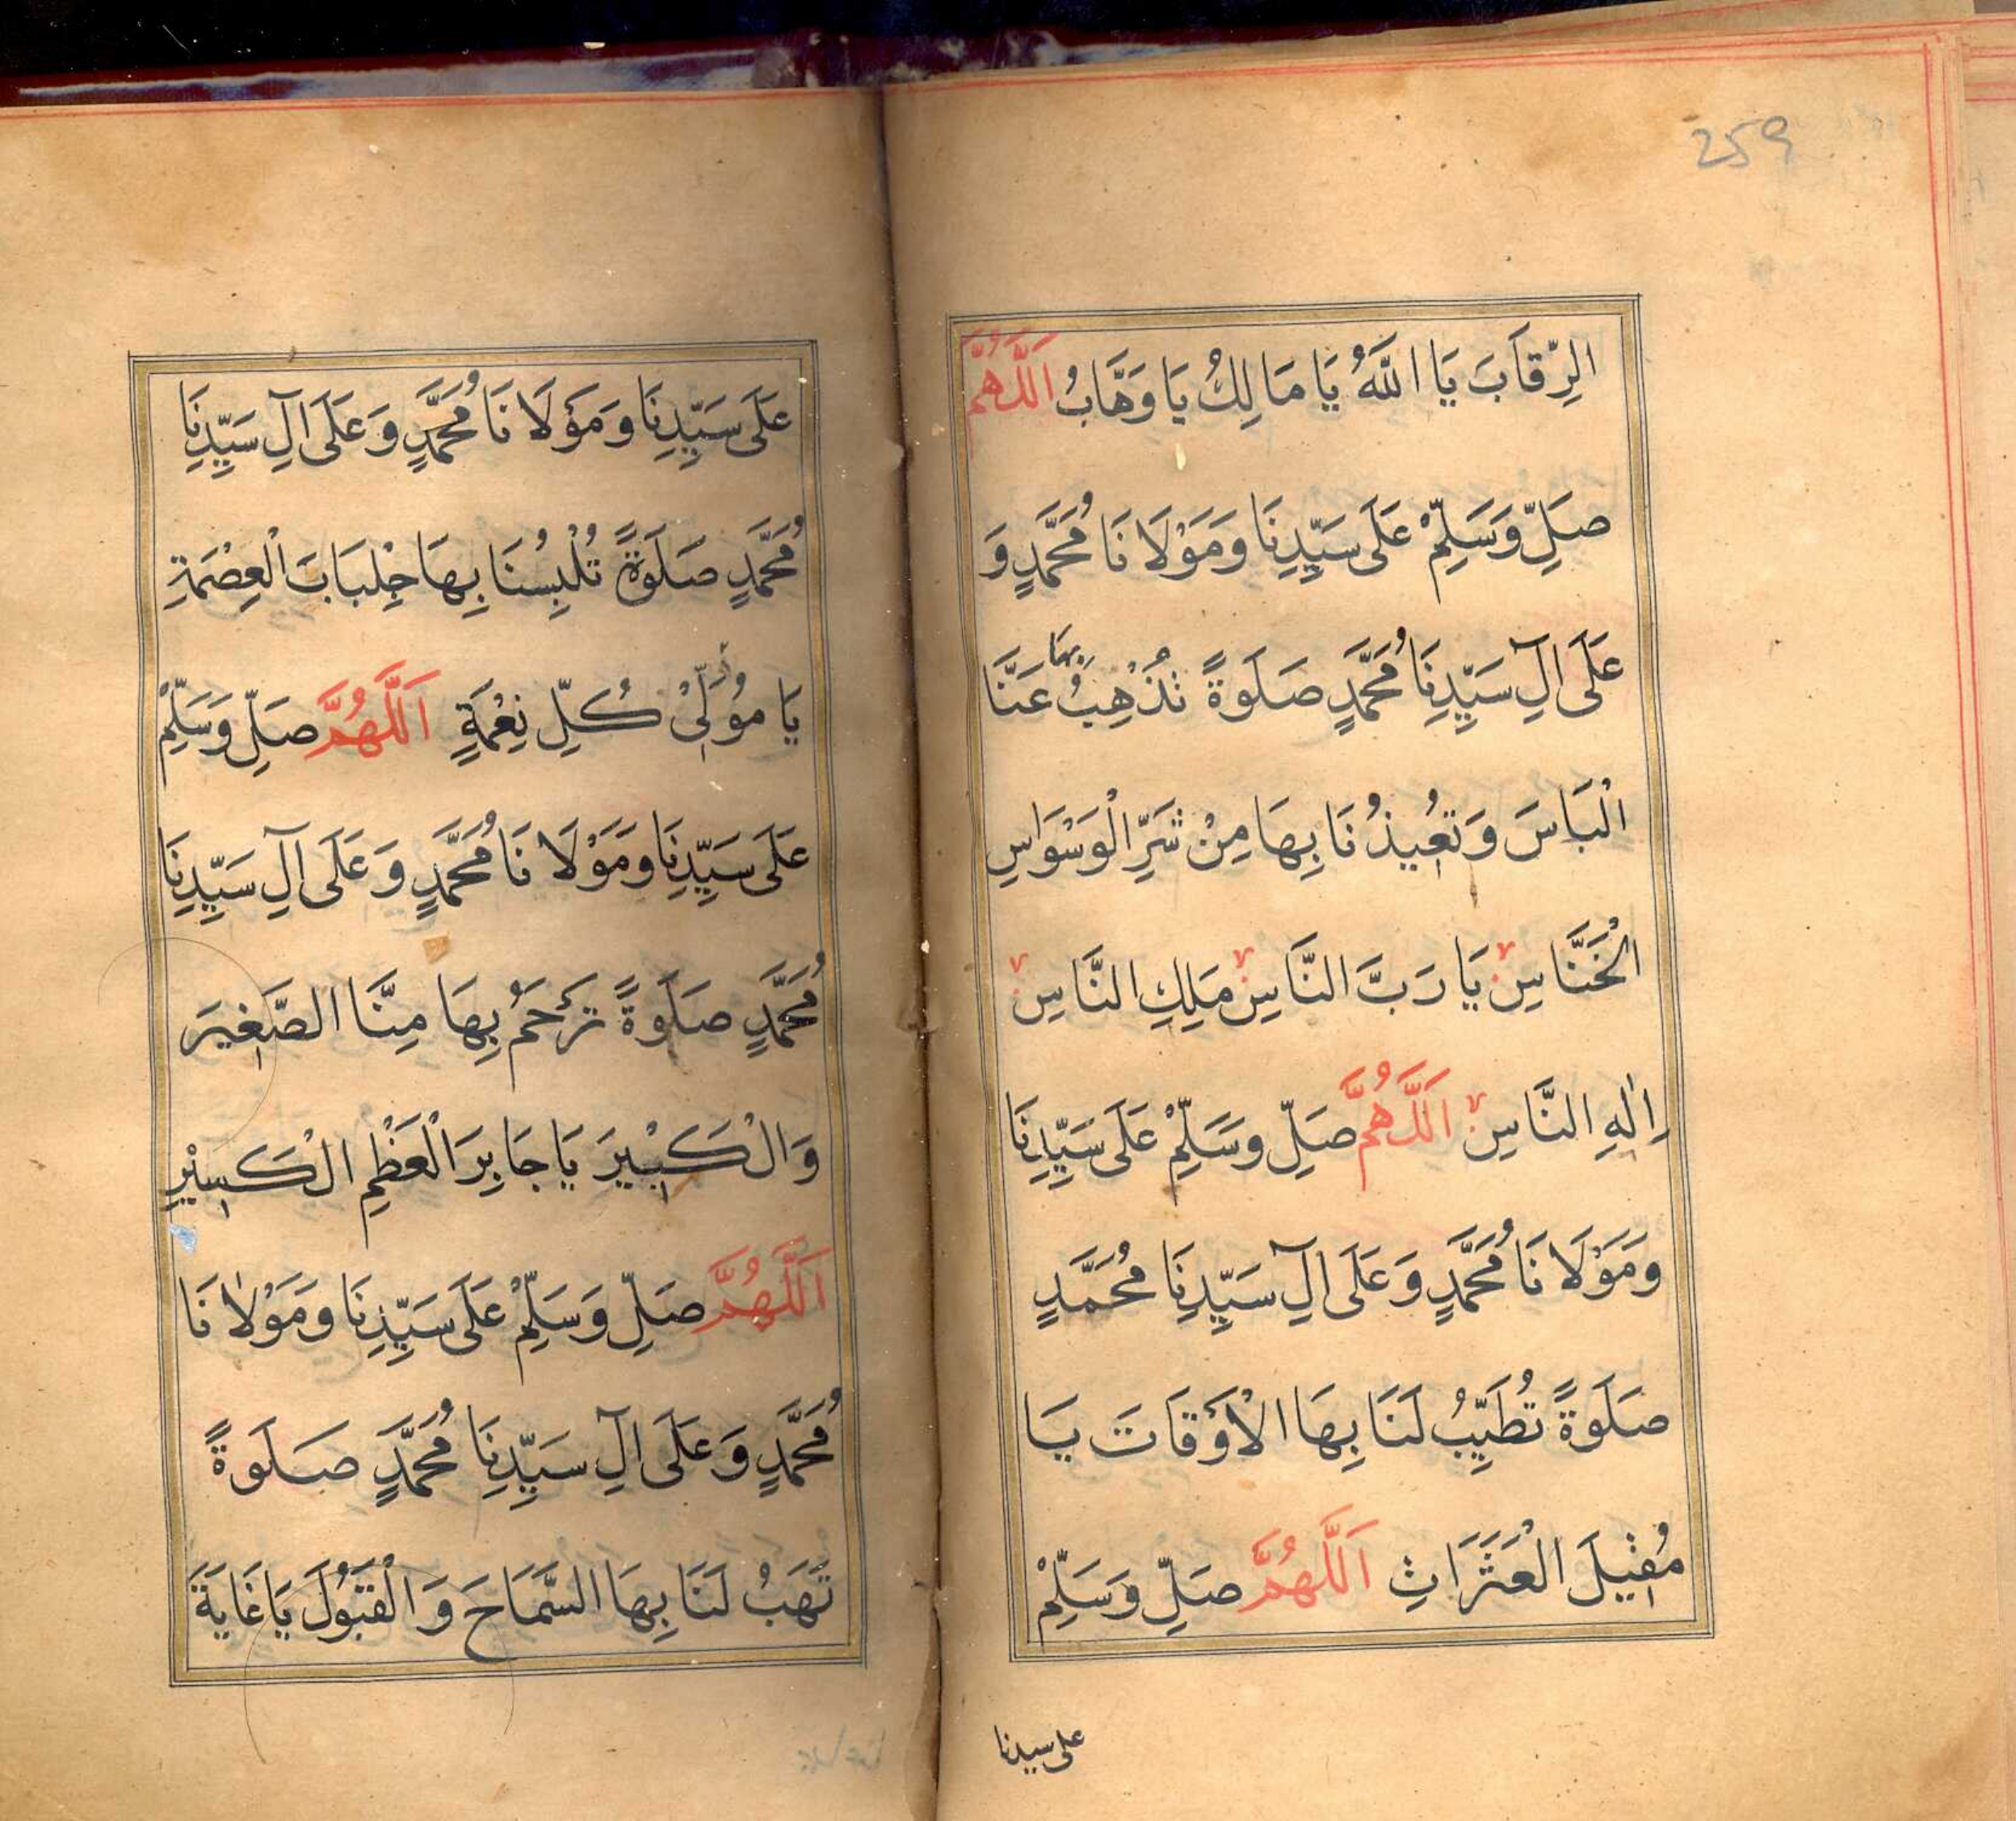 259
الرِّقَابَ يَا اللَّهُ يَا مَالِكُ يَا وَهَّابُ اَللَّهُمَّ
صَلِّ وَسَلِّمْ عَلَى سَيِّدِنَا وَمَوْلَانَا مُحَمَّدٍ وَ
عَلَى اٰلِ سَيِّدِنَا مُحَمَّدٍ صَلَوةً تُذْهِبُ بِهَا عَنَّا
الْبَاسَ وَتُعِيذُنَا بِهَا مِنْ شَرِّ الْوَسْوَاسِ
الْخَنَّاسِ يَا رَبَّ النَّاسِ مَلِكِ النَّاسِ
اِلٰهِ النَّاسِ اَللَّهُمَّ صَلِّ وَسَلِّمْ عَلَى سَيِّدِنَا
وَمَوْلَانَا مُحَمَّدٍ وَعَلَى اٰلِ سَيِّدِنَا مُحَمَّدٍ
صَلَوةً تُطَيِّبُ لَنَا بِهَا الْأَوْقَاتَ يَا
مُقِيلَ الْعَثَرَاتِ اَللَّهُمَّ صَلِّ وَسَلِّمْ
على سيدنا
عَلَى سَيِّدِنَا وَمَوْلَانَا مُحَمَّدٍ وَعَلَى اٰلِ سَيِّدِنَا
مُحَمَّدٍ صَلَوةً تُلْبِسُنَا بِهَا جِلْبَابَ الْعِصْمَةِ
يَا مُوْلِىْ كُلِّ نِعْمَةٍ اَللَّهُمَّ صَلِّ وَسَلِّمْ
عَلَى سَيِّدِنَا وَمَوْلَانَا مُحَمَّدٍ وَعَلَى اٰلِ سَيِّدِنَا
مُحَمَّدٍ صَلَوةً تَرْحَمُ بِهَا مِنَّا الصَّغِيرَ
وَالْكَبِيْرَ يَا جَابِرَ الْعَظْمِ الْكَسِيْرِ
اَللَّهُمَّ صَلِّ وَسَلِّمْ عَلَى سَيِّدِنَا وَمَوْلَانَا
مُحَمَّدٍ وَعَلَى اٰلِ سَيِّدِنَا مُحَمَّدٍ صَلَوةً
تَهَبُ لَنَا بِهَا السَّمَاحَ وَالْقَبُوْلَ يَا غَايَةَ